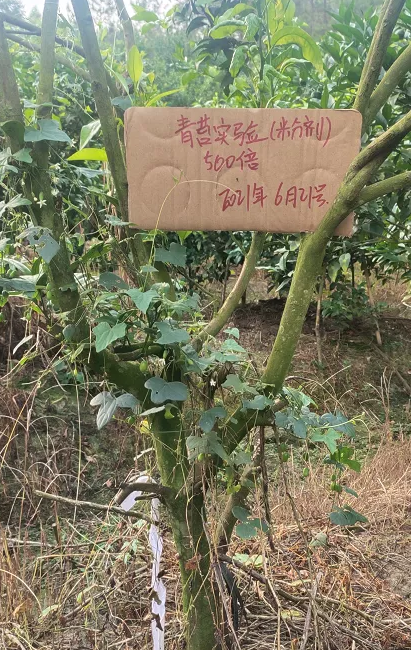 青苔实验(粉剂)
500倍
2021年6月21号